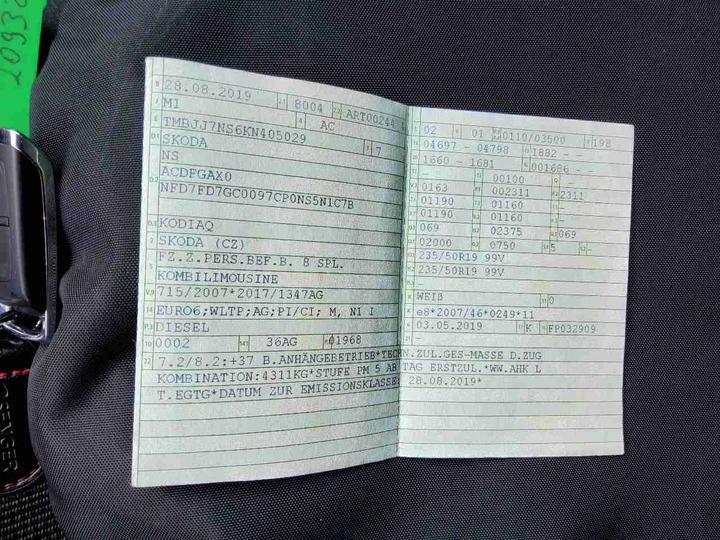 2093
B 28.08.2019 2.1 8004 2.2 ART00244
J MI 4 AC
E TMBJJ7NS6KN405029 3 7
D.1 SKODA
NS
D.2 ACDFGAX0
NFD7FD7GC0097CP0NS5N1C7B
D.3 KODIAQ
2 SKODA (CZ)
5 FZ.Z.PERS.BEF.B. 8 SPL.
KOMBILIMOUSINE
V.9 715/2007*2017/1347AG
14 EURO6;WLTP;AG;PI/CI; M, N1 I
P.3 DIESEL
10 0002 14.1 36AG P.1 01968
22 7.2/8.2:+37 B.ANHÄNGEBETRIEB*TECHN.ZUL.GES-MASSE D.ZUG
KOMBINATION:4311KG*STUFE PM 5 AB TAG ERSTZUL.*WW.AHK L
T.EGTG*DATUM ZUR EMISSIONSKLASSE: 28.08.2019*
02 01 0110/03500 198
04697 - 04798 1882 - -
1660 - 1681 001686 - -
- 00100 -
0163 002311 2311
01190 01160 -
01190 01160 -
069 02375 069
02000 0750 5 -
235/50R19 99V
235/50R19 99V
-
WEIß 0
e8*2007/46*0249*11
03.05.2019 K FP032909
-
SENGER